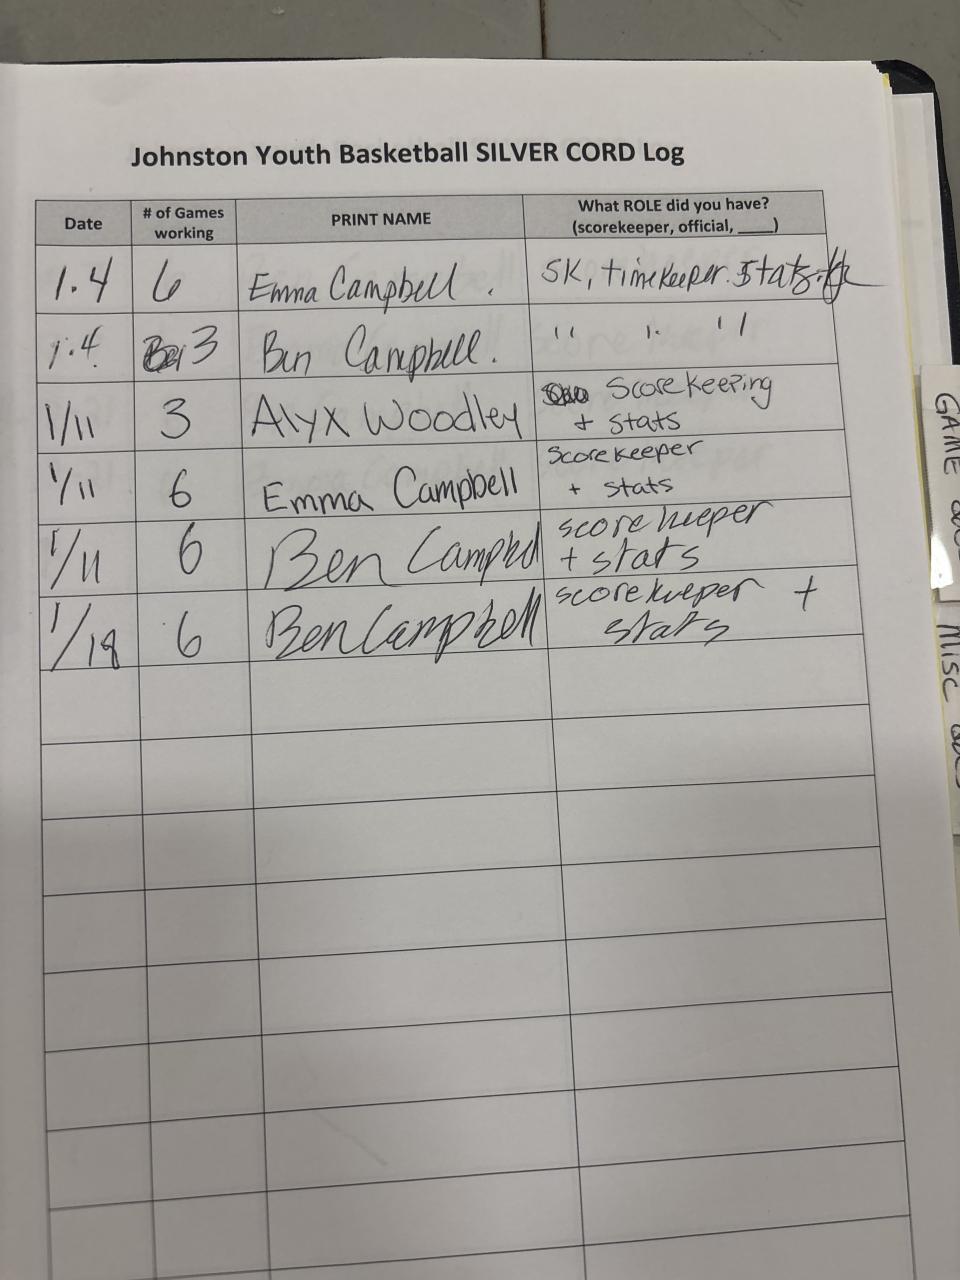 Johnston Youth Basketball SILVER CORD Log
Date
# of Games
working
PRINT NAME
What ROLE did you have?
(scorekeeper, official, ____)
1.4 6 Emma Campbell . SK, timekeeper. Stats.
1.4. 3 Ben Campbell. " " "
1/11 3 Alyx Woodley Scorekeeping
+ stats
1/11 6 Emma Campbell Scorekeeper
+ stats
1/11 6 Ben Campbell scorekeeper
+ stats
1/18 6 Ben Campbell scorekeeper +
stats
GAME
MISC